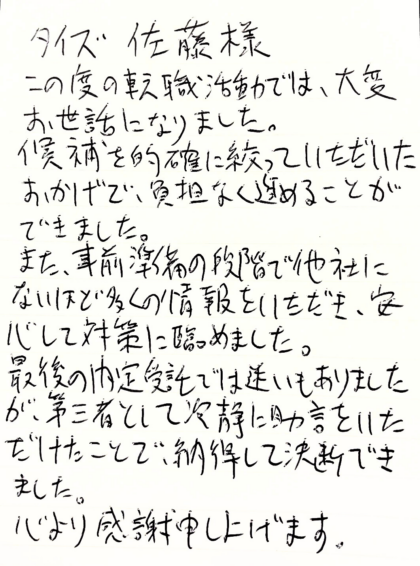 タイズ 佐藤様
この度の転職活動では、大変
お世話になりました。
候補を的確に絞っていただいた
おかげで、負担なく進めることが
できました。
また、事前準備の段階で他社に
ないほど多くの情報をいただき、安
心して対策に臨めました。
最後の内定受託では迷いもありました
が、第三者として冷静に助言をいた
だけたことで、納得して決断でき
ました。
心より感謝申し上げます。